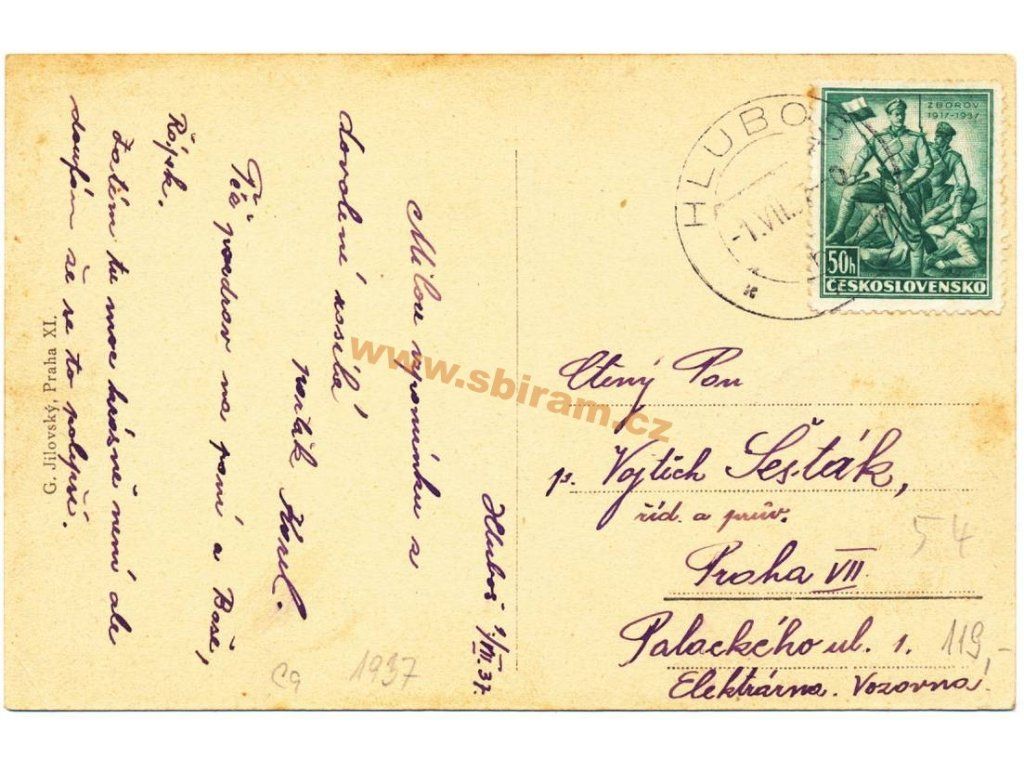 Hluboš 1/VII. 37.
Milou vzpomínku z
dovolené zasílá
Karel.
Též pozdrav na paní a
Zatím tu moc krásně není ale
doufám že se to polepší.
G. Jílovský, Praha XI.
HLUBO
-1.VII.
ZBOROV
1917-1937
50h
ČESKOSLOVENSKO
Ctěný Pan
p. Vojtěch Šesták,
říd. a prův.
Praha VII
Palackého ul. 1.
Elektrárna. Vozovna.
54
119,-
1937
www.sbiram.cz